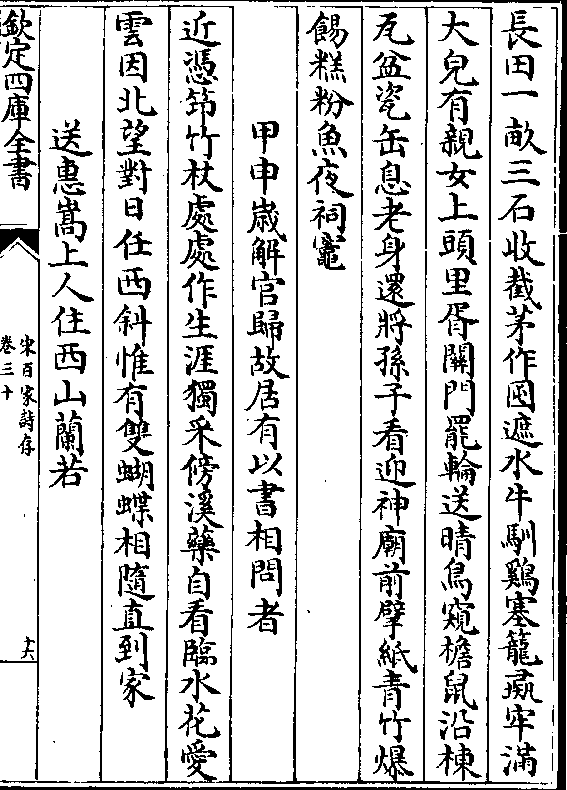 長田一畝三石收截茅作囷遮水牛馴鷄塞籠彘牢滿
大兒有親女上頭里胥關門罷輪送晴鳥窺檐鼠沿棟
瓦盆瓷缶息老身還將孫子看迎神廟前擘紙青竹爆
餳糕粉魚夜祠竈
甲申歲解官歸故居有以書相問者
近憑筇竹杖處處作生涯獨采傍溪藥自看臨水花愛
雲因北望對日任西斜惟有雙蝴蝶相隨直到家
送惠嵩上人住西山蘭若
欽定四庫全書
宋百家詩存
卷三十
十六